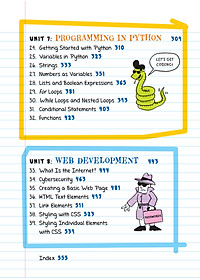 UNIT 7: PROGRAMMING IN PYTHON 309
24. Getting Started with Python 310
25. Variables in Python 323
26. Strings 333
27. Numbers as Variables 351
28. Lists and Boolean Expressions 365
29. For Loops 381
30. While Loops and Nested Loops 393
31. Conditional Statements 403
32. Functions 423
LET'S GET CODING!
UNIT 8: WEB DEVELOPMENT 443
33. What Is the Internet? 444
34. Cybersecurity 463
35. Creating a Basic Web Page 481
36. HTML Text Elements 497
37. Link Elements 511
38. Styling with CSS 523
39. Styling Individual Elements
with CSS 539
Index 555